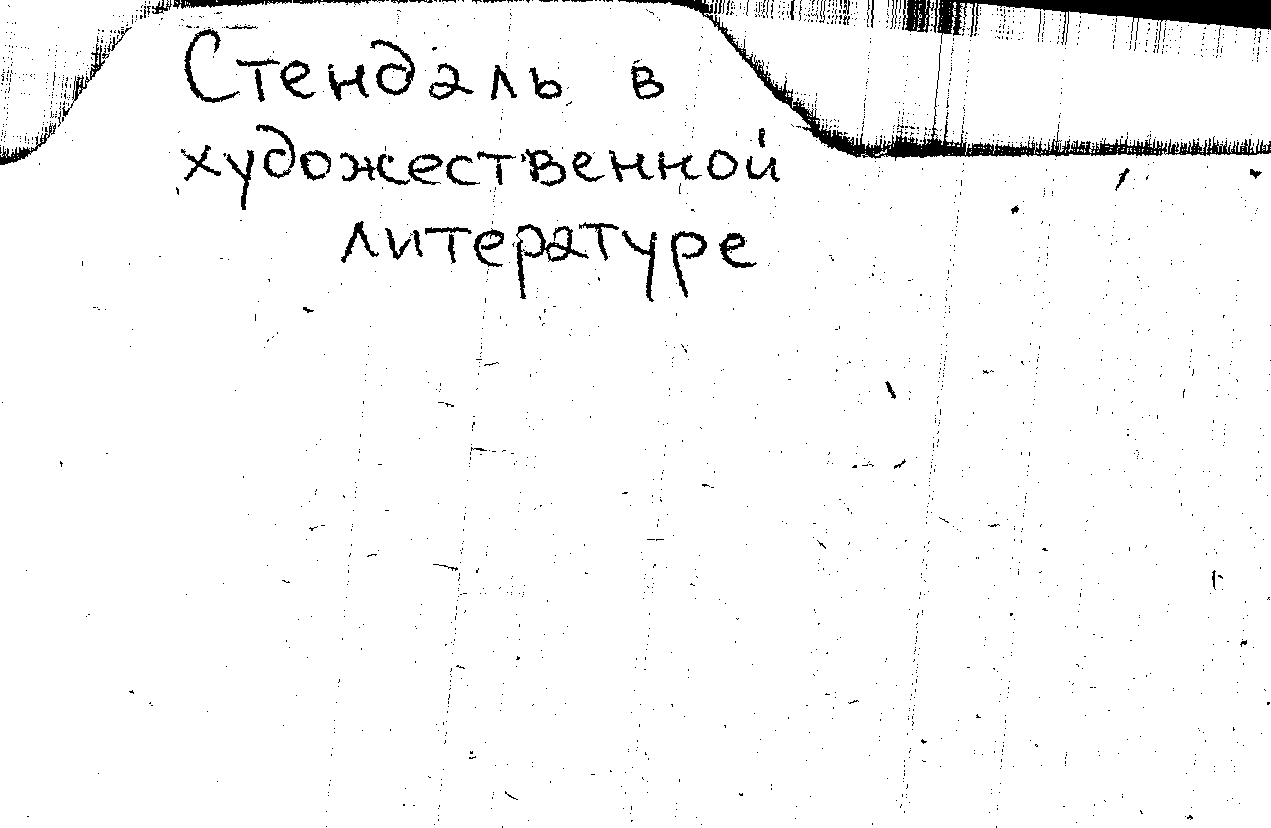 Стендаль в
художественной
литературе